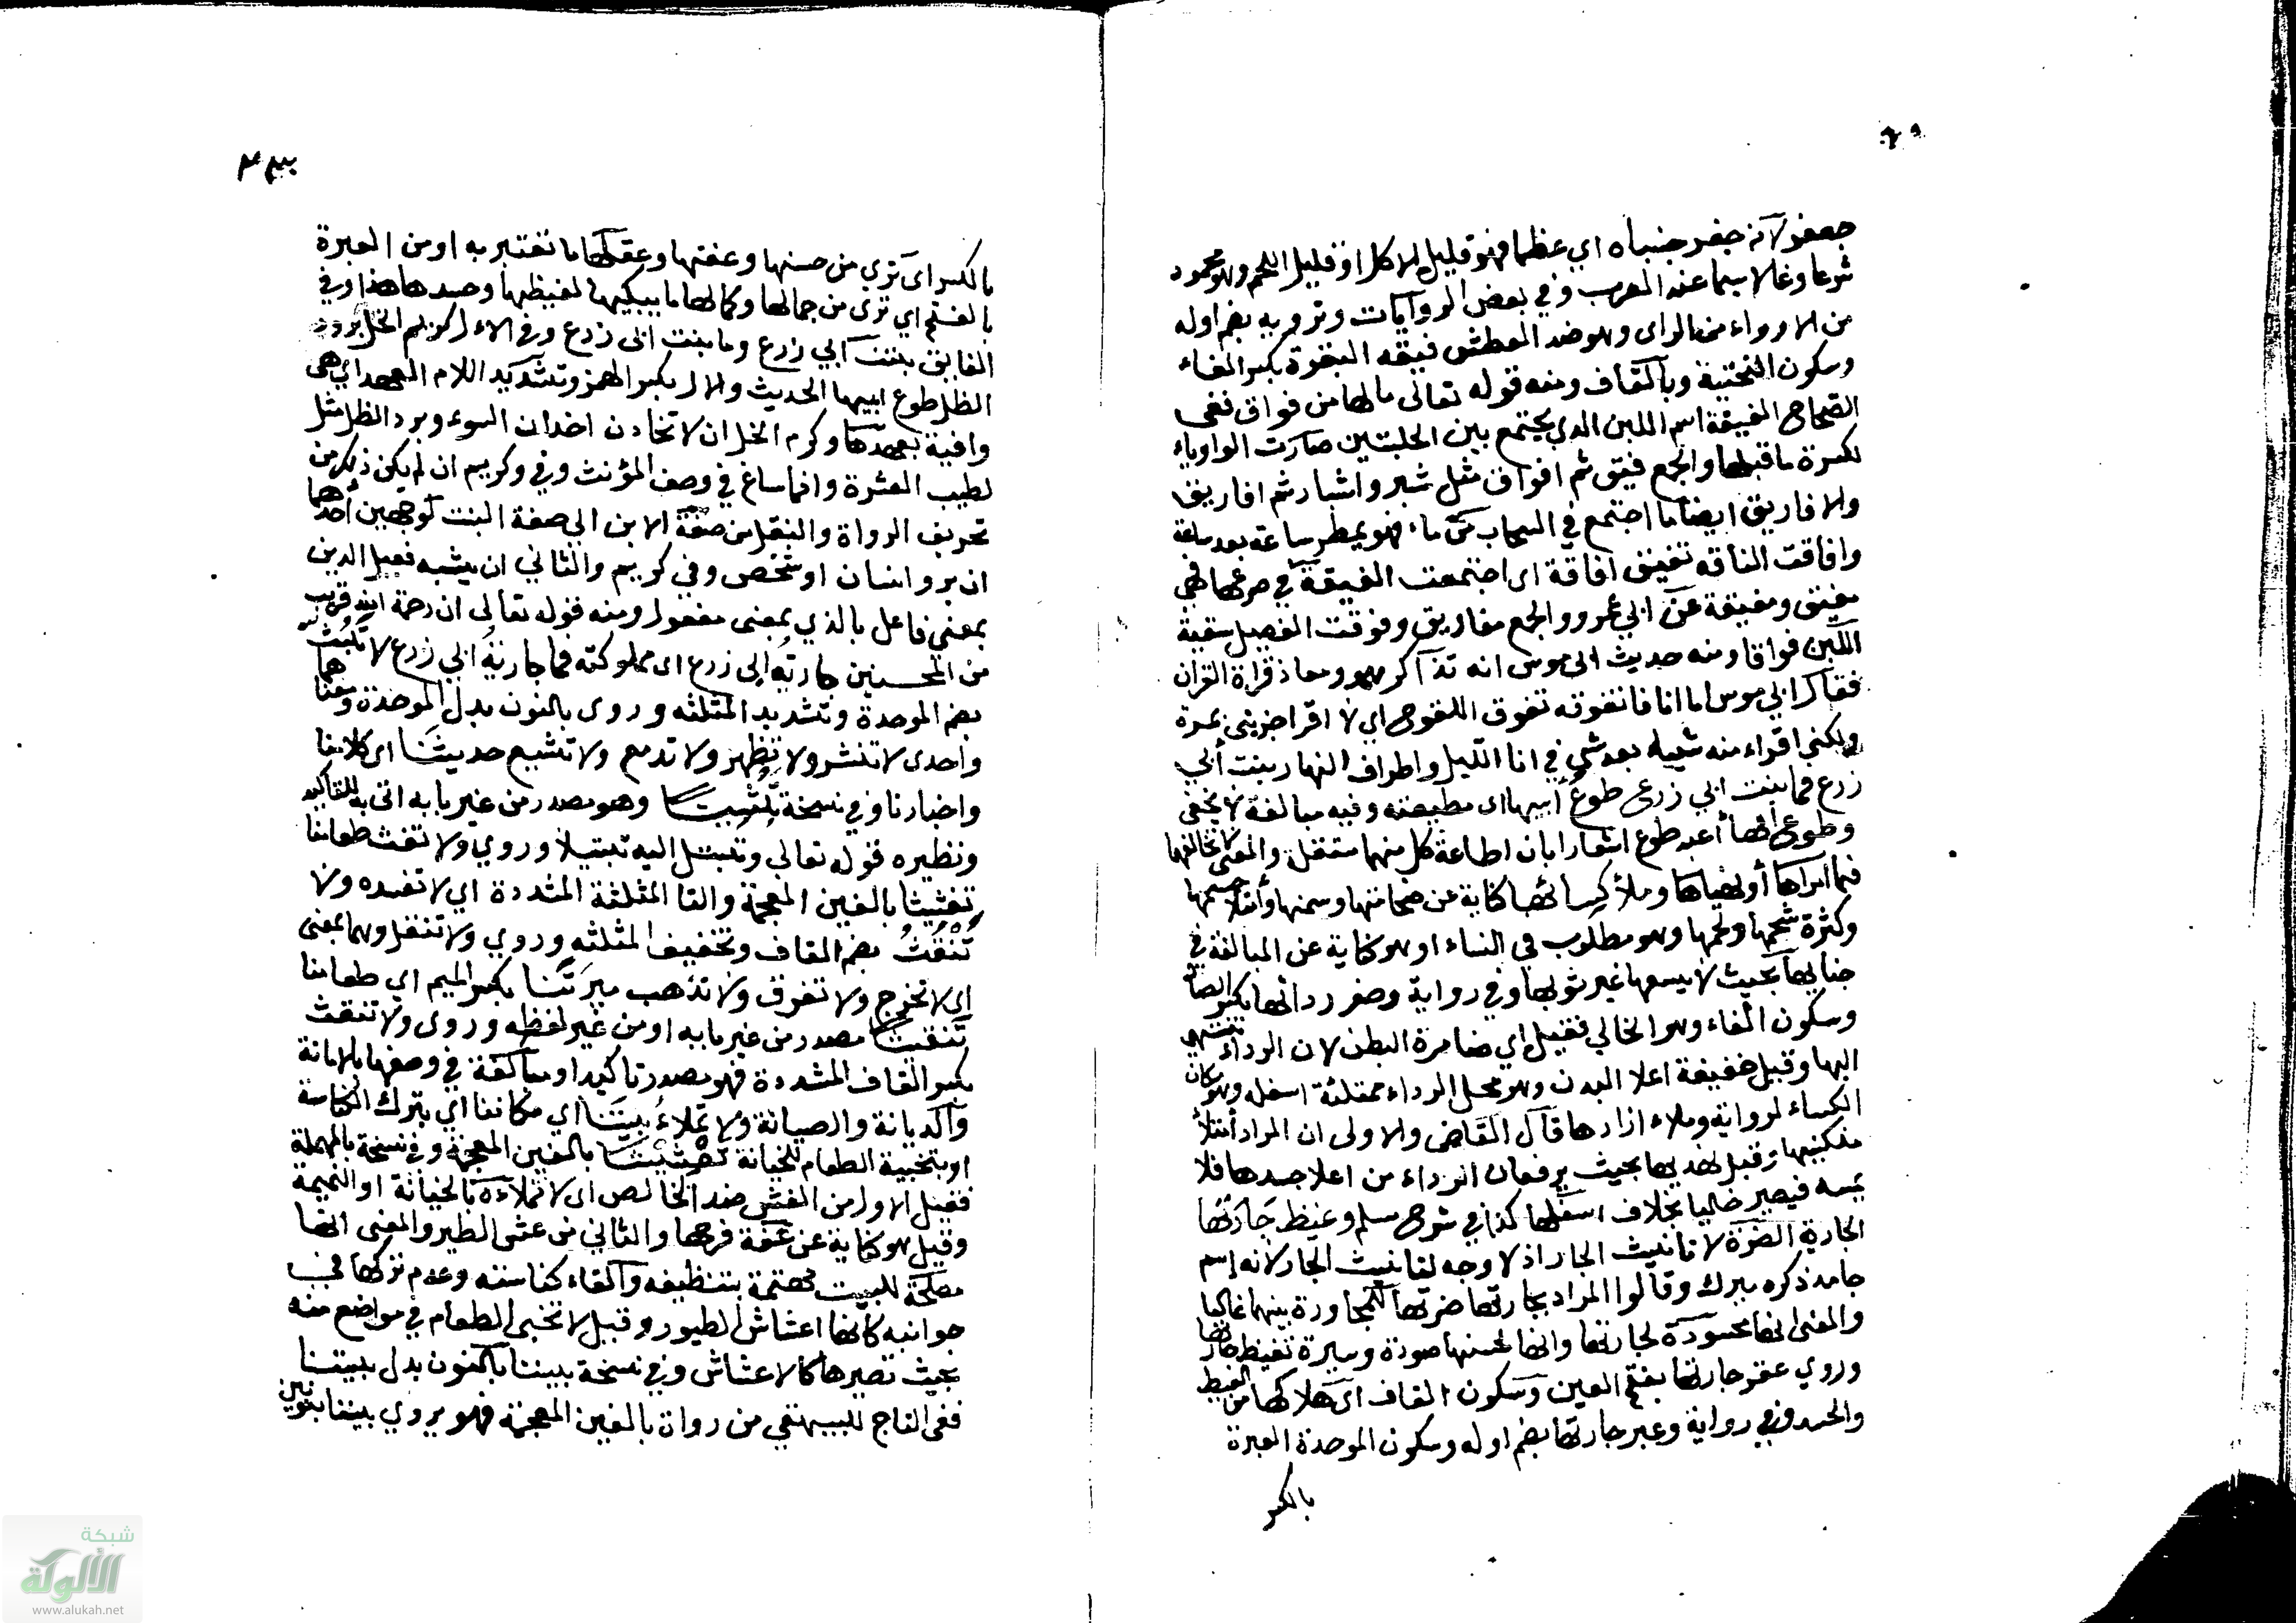 جعفر لانه جفر جنباه اي عظما فهو قليل الاكل او قليل اللحم وهو محمود
شرعا وغالا سيما عند العرب وفي بعض الروايات وترويه بضم اوله
من الارواء من الراى وهو ضد العطش فيقه اليعرة بكسر الفاء
وسكون التحتية وبالقاف ومنه قوله تعالى مالها من فواق ففي
الصحاح الفيقة اسم اللبن الذي يجتمع بين الحلبتين صارت الواو ياء
لكسرة ما قبلها والجمع فيق ثم افواق مثل شبر واشبار ثم افاريق
والافاريق ايضا ما اجتمع في السحاب من ماء فهو يمطر ساعة بعد ساعة
وافاقت الناقه تفيق افاقة اى اجتمعت الفيقة في ضرعها فهي
مفيق ومفيقة عن ابي عمرو والجمع مفاريق وفوقت الفصيل سقيته
اللبن فواقا ومنه حديث ابي موسى انه تذاكر هو ومعاذ قراة القران
فقال ابي موسى اما انا فاتفوقه تفوق اللقوح اي لا اقرا جزئي بمرة
ولكني اقراء منه شيئا بعد شي في انا الليل واطراف النهار بنت أبي
زرع فما بنت ابي زرع طوع أبيها اى مطيعته وفيه مبالغة لا يخفى
وطوع امها أعيد طوع اشعارا بان اطاعة كل منهما مستقل والمعنى لا تخالفهما
فيما امراها أو نهياها وملأ كسائها كناية عن ضخامتها وسمنها وأمتلا جسمها
وكثرة شحمها ولحمها وهو مطلوب في النساء او هو كناية عن المبالغة في
حيائها بحيث لا يسعها غير ثوبها وفي رواية وصفر ردائها بكسر الصاد
وسكون الفاء وهو الخالي فقيل اي ضامرة البطن لان الرداء تنتهي
اليها وقيل خفيفة اعلا البدن وهو محل الرداء ممتلئة اسفله وهو مكان
الكساء لرواية وملاء ازارها قال القاضي والاولى ان المراد أمتلأ
منكبيها وقيل نهديها بحيث يرفعان الرداء من اعلا جسدها فلا
يمسه فيصير خاليا بخلاف اسفلها كذا في شرح مسلم وغيظ جارتها
الجارية الضرة لا تانيث الجار اذ لا وجه لتانيث الجار لانه اسم
جامد ذكره ميرك وقالوا المراد بجارتها ضرتها للمجاورة بينهما غالبا
والمعنى انها محسودة لجارتها وانها لحسنها صورة وسيرة تغيظ جارتها
وروي عقر جارتها بفتح العين وسكون القاف اى هلاكها من الغيظ
والحسد وفي رواية وعبر جارتها بضم اوله وسكون الموحدة العبرة
بالكسر
٢٣٠
بالكسر اى ترى من حسنها وعفتها وعقلها ما تعتبر به او من العبرة
بالفتح اي ترى من جمالها وكمالها ما يبكيها لغيظها وحسدها هذا وفي
الفايق بنت ابي زرع وما بنت ابى زرع وفي الال كريم الخل برود
الظل طوع ابيها الحديث والال بكسر الهمز وتشديد اللام العهد اي هى
وافية بعهدها وكرم الخل ان لا تخادن اخدان السوء وبرد الظل مثل
لطيب العشرة وانما ساغ في وصف المؤنث وفي وكريم ان لم يكن ذلك من
تحريف الرواة والنقل من صفة الابن الى صفة البنت لوجهين أحدهما
ان يرو انسان او شخص وفي كريم والثاني ان يشبه فعيل الذين
بمعنى فاعل بالذي بمعنى مفعول ومنه قوله تعالى ان رحمة الله قريب
من المحسنين جارية ابي زرع اى مملوكته فما جارية ابي زرع لا تبث
بضم الموحدة وتشديد المثلثه وروى بالنون بدل الموحدة ومعناهما
واحدى لا تنشر ولا تظهر ولا تدمع ولا تشيع حديثنا اى كلامنا
واخبارنا وفي نسخة تبثيثا وهو مصدر من غير بابه اتى به للتاكيد
ونظيره قوله تعالى وتبتل اليه تبتيلا وروي ولا تغث طعامنا
تغثيثا بالغين المعجمة والثا المثلثة المشددة اي لا تفسده ولا
تنقث بضم القاف وتخفيف المثلثه وروي ولا تنقل وهما بمعنى
اى لا تخرج ولا تفرق ولا تذهب ميرتنا بكسر الميم اي طعامنا
تنقيثا مصدر من غير بابه او من غير لفظه وروى ولا تنقث
بكسر القاف المشددة فهو مصدر تاكيد او مبالغة في وصفها بالامانة
والديانة والصيانة ولا تملاء بيتنا اي مكاننا اي بترك الكناسة
او بتخبية الطعام للخيانة تغشيشا بالغين المعجمة وفي نسخة بالمهملة
فقيل الاول من الغش ضد الخالص اى لا تملاءه بالخيانة او النميمة
وقيل هو كناية عن عفة فرجها والثاني من عش الطير والمعنى انها
مصلحة للبيت مهتمة بتنظيفه والقاء كناسته وعدم تركها في
جوانبه كانها اعشاش الطيور وقيل لا تخبى الطعام في مواضع منه
بحيث تصيرها كالاعشاش وفي نسخة بيننا بالنون بدل بيتنا
ففى التاج للبيهقي من رواه بالغين المعجمة فهو يروي بيننا بنونين
شبكة
الألوكة
www.alukah.net